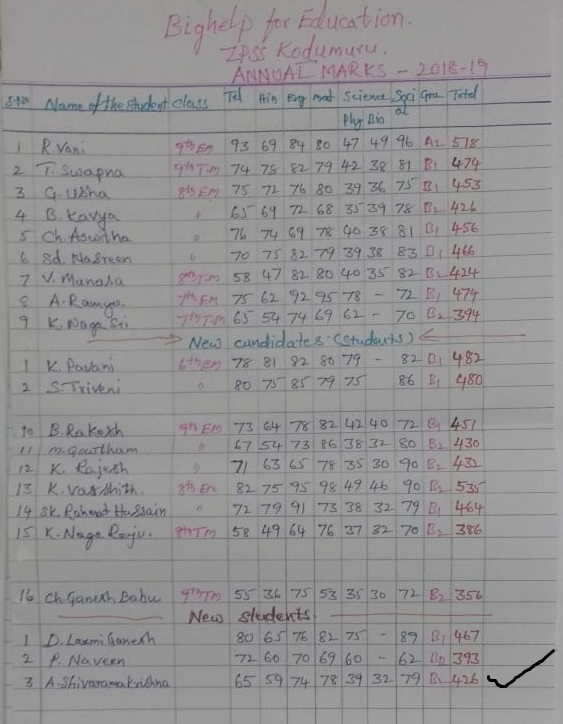 Bighelp for Education.
ZPSS Kodumuru.
ANNUAL MARKS - 2018-19
S.No Name of the student Class Tel Hin Eng Mat Science Social Gra Total
Phy Bio
1 R. Vani 9th EM 93 69 84 80 47 49 96 A2 518
2 T. Swapna 9th T.M 74 78 82 79 42 38 81 B1 474
3 G. Usha 8th EM 75 72 76 80 39 36 75 B1 453
4 B. Kavya " 65 69 72 68 35 39 78 B2 426
5 Ch. Aswitha " 76 74 69 78 40 38 81 B1 456
6 Sd. Nasreen " 70 75 82 79 39 38 83 B1 466
7 V. Manasa 8th T.M 58 47 82 80 40 35 82 B2 424
8 A. Ramya 7th EM 75 62 92 95 78 - 72 B1 474
9 K. Naga Sri 7th T.M 65 54 74 69 62 - 70 B2 394
New candidates (Students)
1 K. Pavani 6th EM 78 81 82 80 79 - 82 B1 482
2 S. Triveni " 80 75 85 79 75 86 B1 480
10 B. Rakesh 9th EM 73 64 78 82 42 40 72 B1 451
11 M. Gowtham " 67 54 73 86 38 32 80 B2 430
12 K. Rajesh " 71 63 65 78 35 30 90 B2 432
13 K. Varshith 8th Em 82 75 95 98 49 46 90 B2 535
14 SK. Rahmat Hussain " 72 79 91 73 38 32 79 B1 464
15 K. Naga Raju. 8th TM 58 49 64 76 37 32 70 B2 386
16 Ch. Ganesh Babu 9th TM 55 36 75 53 35 30 72 B2 356
New Students.
1 D. Laxmi Ganesh 80 65 76 82 75 - 89 B1 467
2 P. Naveen 72 60 70 69 60 - 62 393
3 A. Shivaramakrishna 65 59 74 78 39 32 79 B2 426